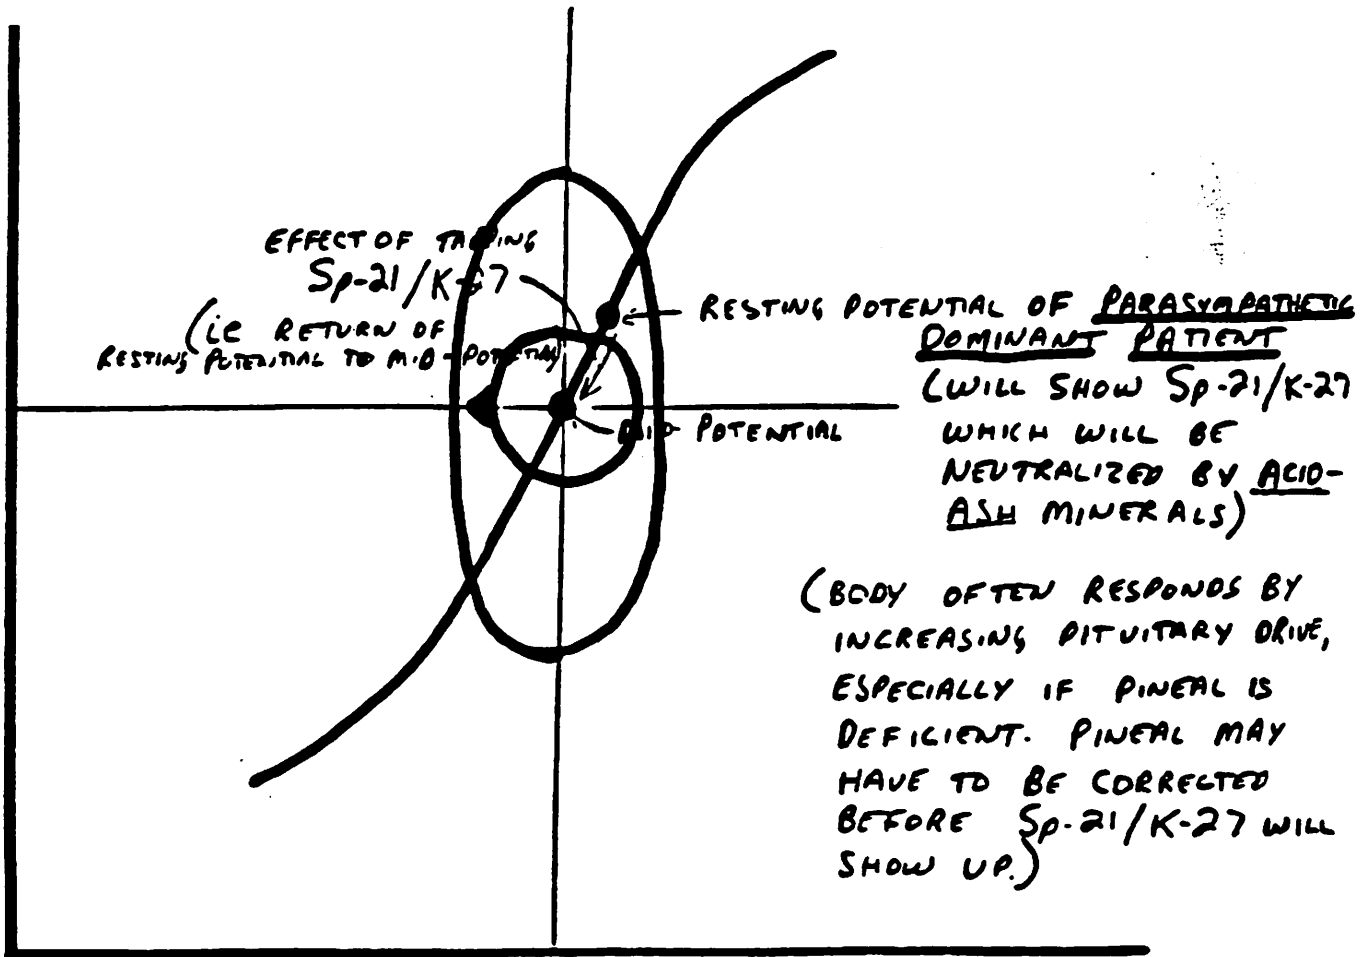 EFFECT OF TAPPING
Sp-21/K-27
(ie RETURN OF
RESTING POTENTIAL TO MID-POTENTIAL)
RESTING POTENTIAL OF PARASYMPATHETIC
DOMINANT PATIENT
(WILL SHOW Sp-21/K-27
WHICH WILL BE
NEUTRALIZED BY ACID-
ASH MINERALS)
MID-POTENTIAL
(BODY OFTEN RESPONDS BY
INCREASING PITUITARY DRIVE,
ESPECIALLY IF PINEAL IS
DEFICIENT. PINEAL MAY
HAVE TO BE CORRECTED
BEFORE Sp-21/K-27 WILL
SHOW UP.)